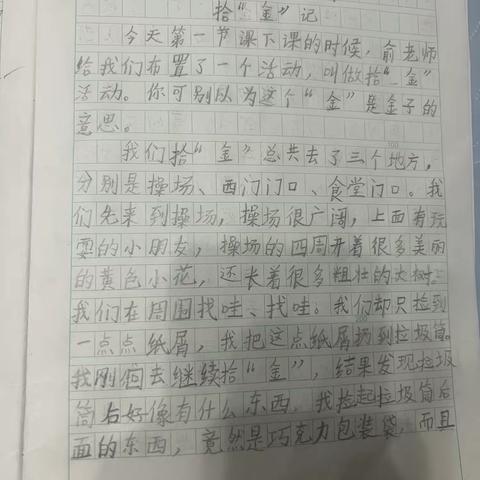 拾“金”记
今天第一节课下课的时候，俞老师
给我们布置了一个活动，叫做拾“金”
活动。你可别以为这个“金”是金子的
意思。
我们拾“金”总共去了三个地方，
分别是操场、西门门口、食堂门口。我
们先来到操场，操场很广阔，上面有玩
耍的小朋友，操场的四周开着很多美丽
的黄色小花，还长着很多粗壮的大树。
我们在周围找哇、找哇。我们却只捡到
一点点纸屑，我把这点纸屑扔到垃圾筒。
我刚回去继续拾“金”，结果发现垃圾
筒右好像有什么东西，我捡起垃圾筒后
面的东西，竟然是巧克力包装袋，而且